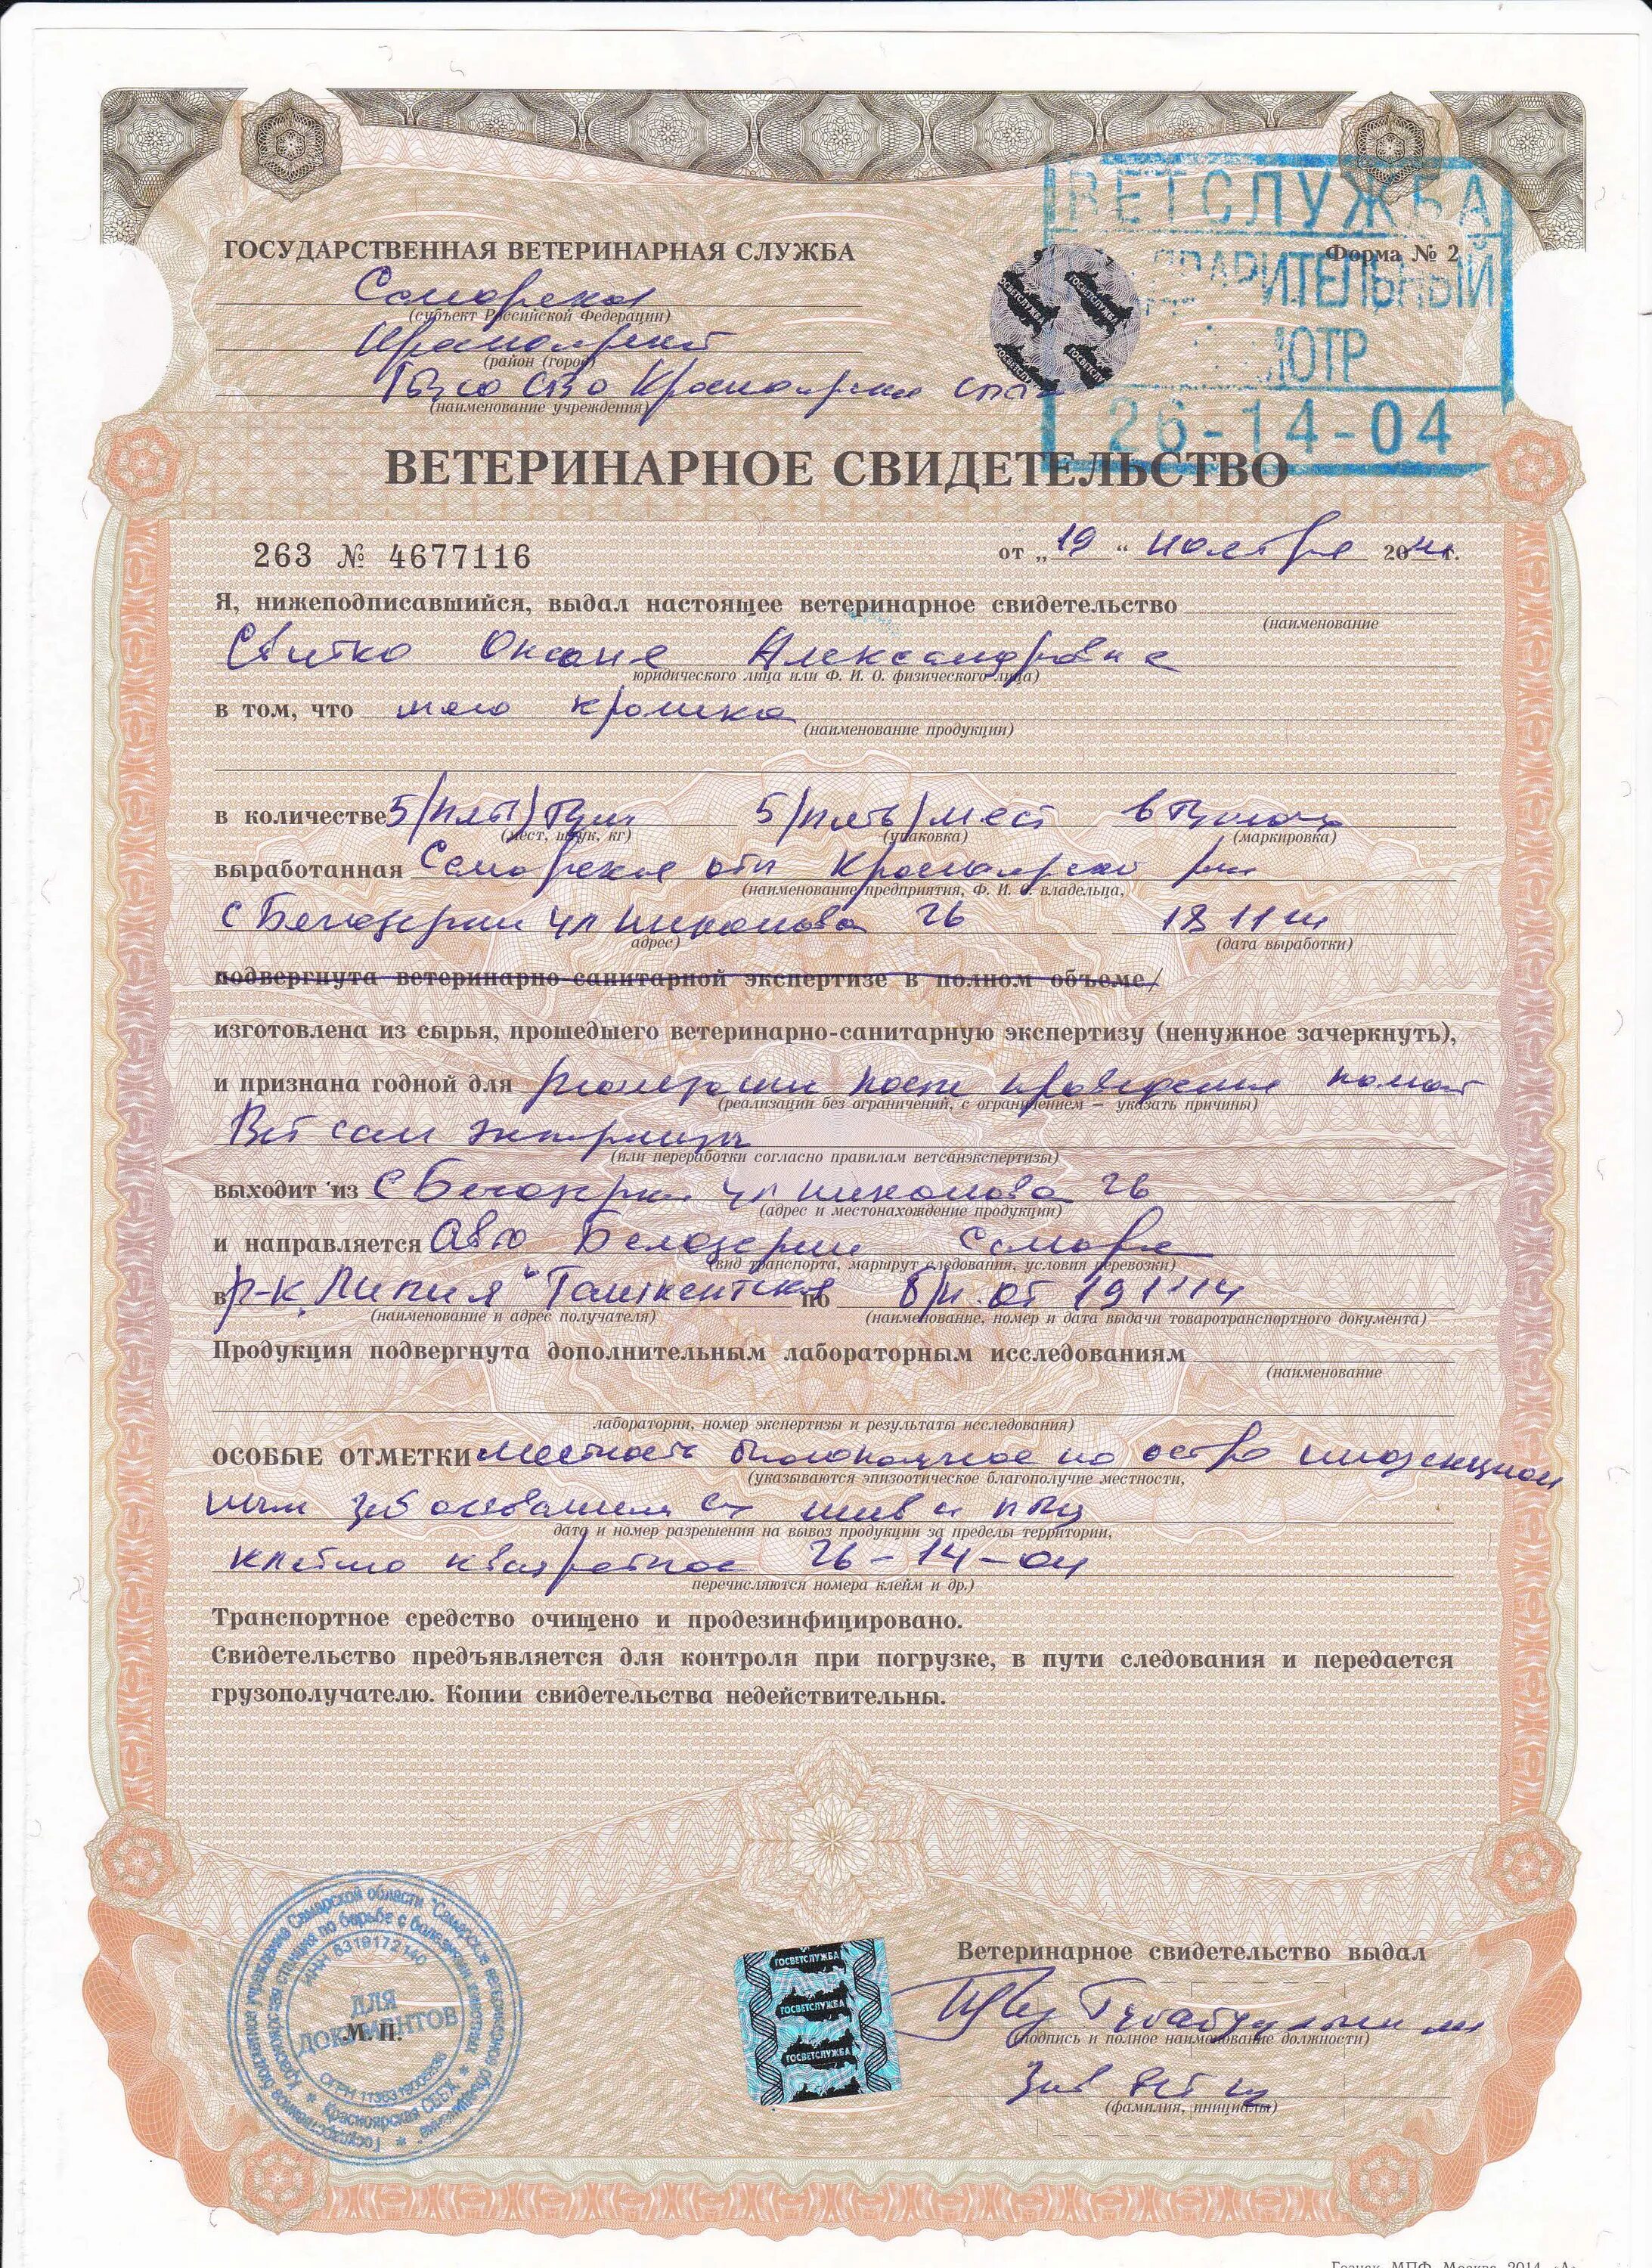 ВЕТСЛУЖБА
ГОСУДАРСТВЕННАЯ ВЕТЕРИНАРНАЯ СЛУЖБА
Форма № 2
Самарская
(субъект Российской Федерации)
Красноярский
(район (город)
СВО Красноярская
(наименование учреждения)
26-14-04
ВЕТЕРИНАРНОЕ СВИДЕТЕЛЬСТВО
263 № 4677116
от „19“ ноября 2014г.
Я, нижеподписавшийся, выдал настоящее ветеринарное свидетельство
(наименование
Свитко Оксане Александровне
юридического лица или Ф. И. О. физического лица)
в том, что мясо кролика
(наименование продукции)
в количестве 5/пять/туш 5/пять/мест
(мест, штук, кг) (упаковка) (маркировка)
выработанная Самарская обл Красноярский
(наименование предприятия, Ф. И. О. владельца,
с Белозерки ул 26 18 11 14
адрес) (дата выработки)
подвергнута ветеринарно-санитарной экспертизе в полном объеме/
изготовлена из сырья, прошедшего ветеринарно-санитарную экспертизу (ненужное зачеркнуть),
и признана годной для реализации после проведения
(реализации без ограничений, с ограничением — указать причины)
Вет сан экспертизы
(или переработки согласно правилам ветсанэкспертизы)
выходит из с Белозерки ул 26
(адрес и местонахождение продукции)
и направляется Авто Белозерки Самара
(вид транспорта, маршрут следования, условия перевозки)
в р-к „Лилия“ Ташкентская по б/н от 19 11 14
(наименование и адрес получателя) (наименование, номер и дата выдачи товаротранспортного документа)
Продукция подвергнута дополнительным лабораторным исследованиям
(наименование
лаборатории, номер экспертизы и результаты исследования)
ОСОБЫЕ ОТМЕТКИ местность благополучное по остро инфекцион
(указываются эпизоотическое благополучие местности,
ным заболеваниям
дата и номер разрешения на вывоз продукции за пределы территории,
клеймо квадратное 26-14-04
перечисляются номера клейм и др.)
Транспортное средство очищено и продезинфицировано.
Свидетельство предъявляется для контроля при погрузке, в пути следования и передается
грузополучателю. Копии свидетельства недействительны.
Ветеринарное свидетельство выдал
(подпись и полное наименование должности)
(фамилия, инициалы)
ГОСВЕТСЛУЖБА
ГОСВЕТСЛУЖБА
ГОСВЕТСЛУЖБА
ДЛЯ
ДОКУМЕНТОВ
М. П.
Красноярская СББЖ